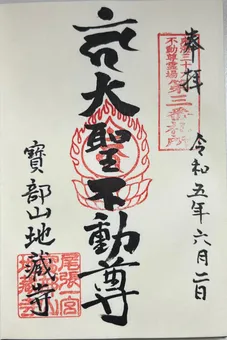 奉拝
東海三十六
不動尊霊場
第三番札所
令和五年六月二日
大聖不動尊
寶部山地蔵寺
尾張一宮